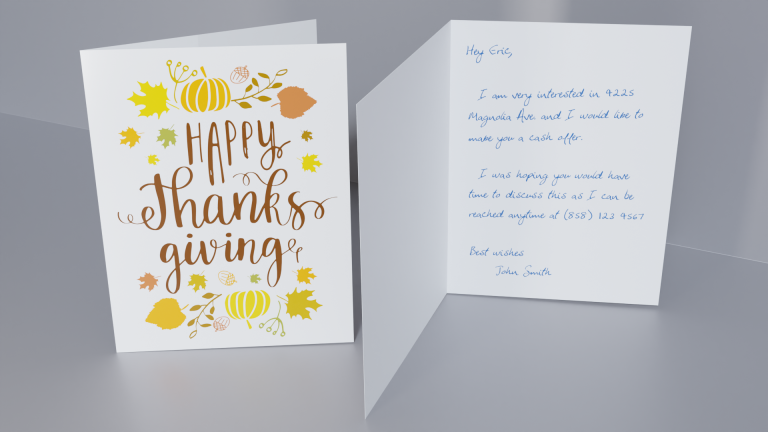 HAPPY
Thanks
giving
Hey Eric,
I am very interested in 4225
Magnolia Ave. and I would like to
make you a cash offer.
I was hoping you would have
time to discuss this as I can be
reached anytime at (858) 123 4567
Best wishes
John Smith